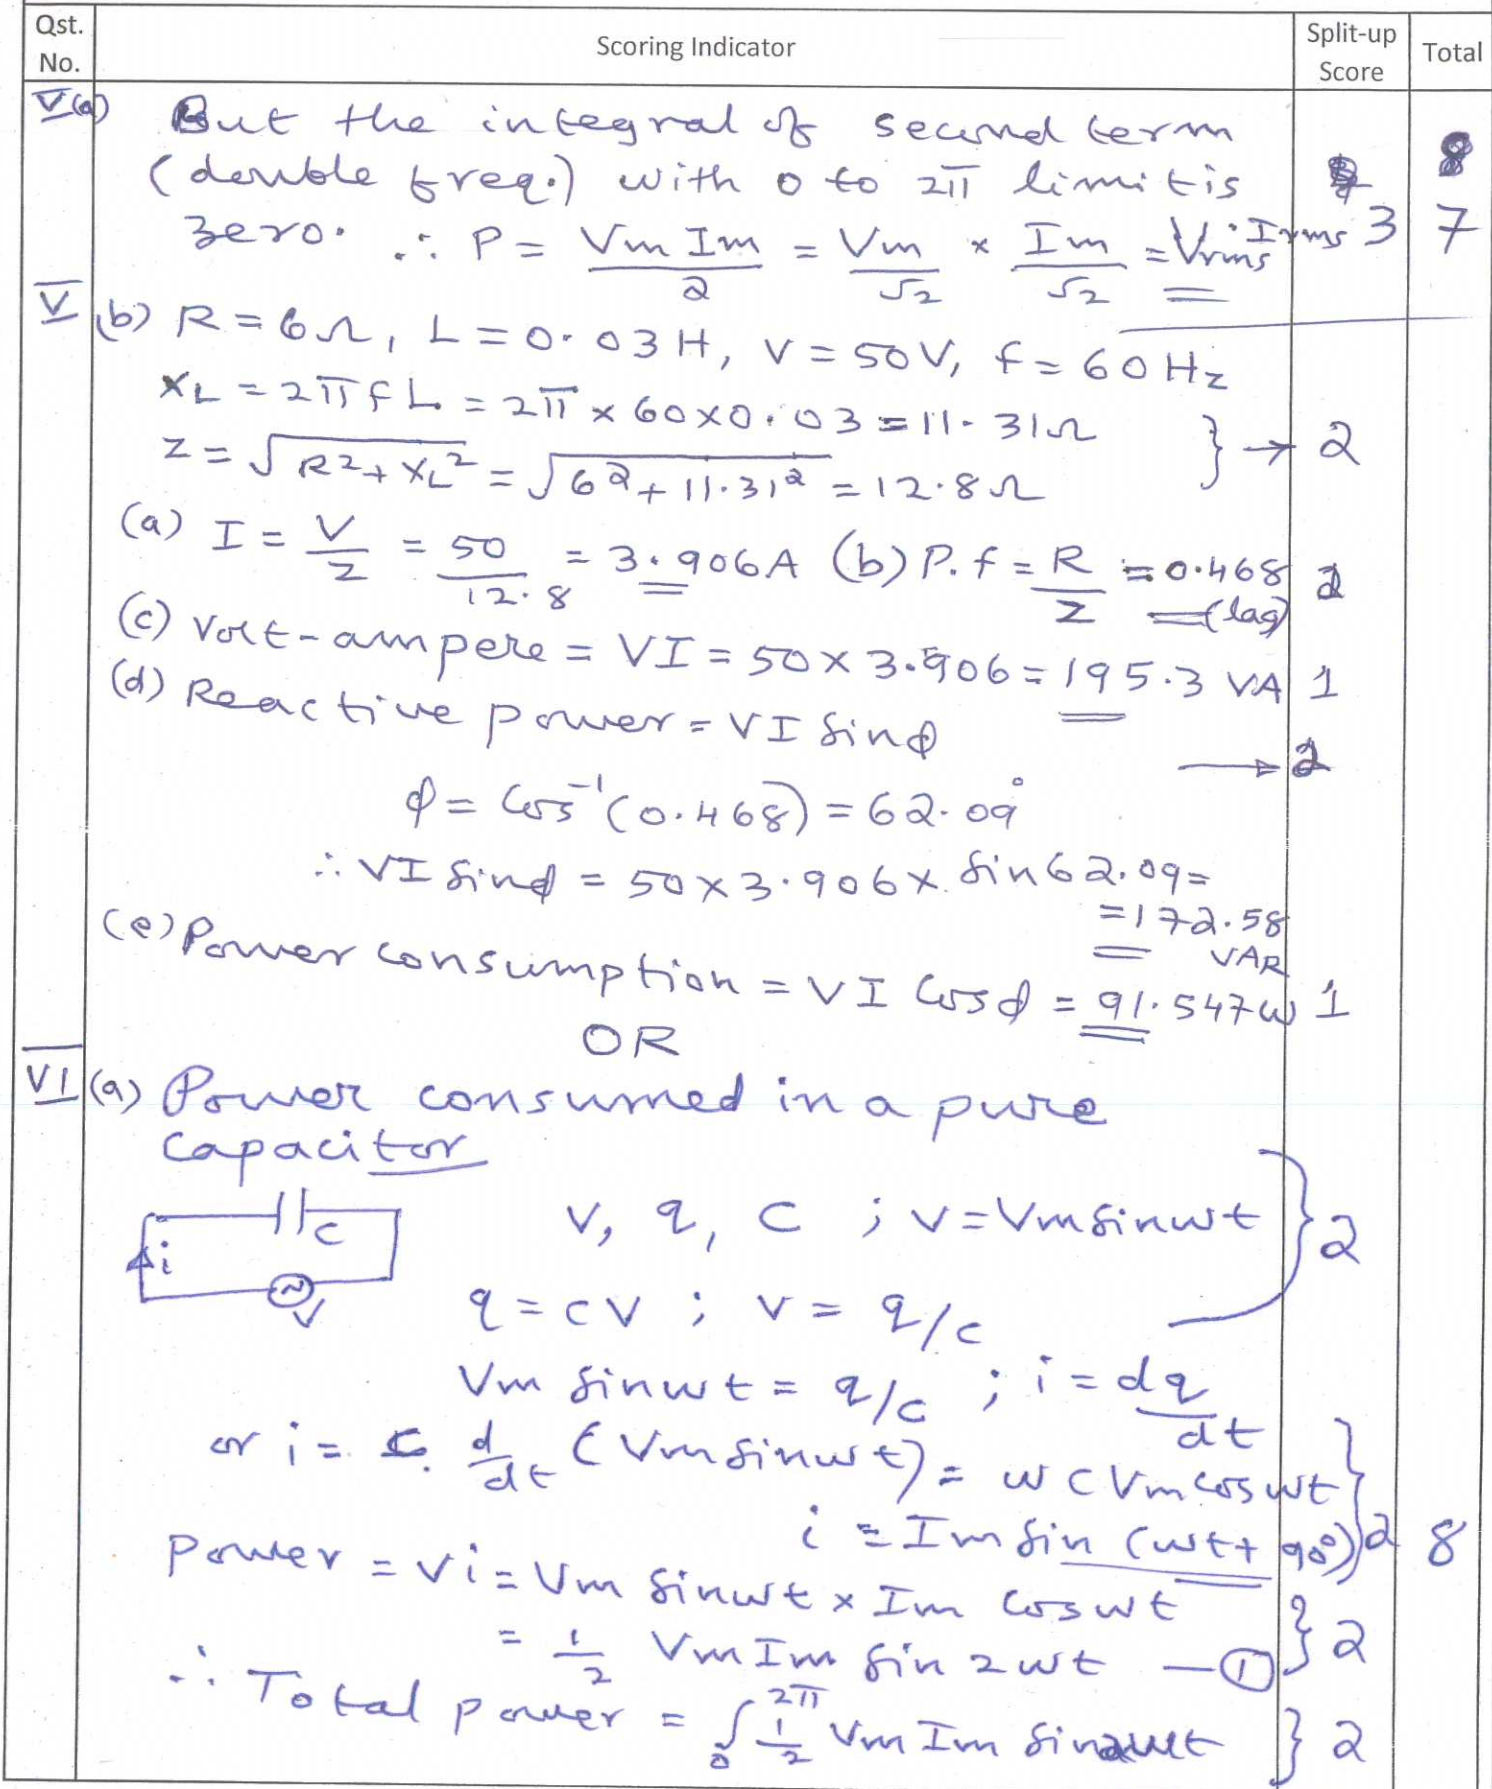 Qst. No. Scoring Indicator Split-up Score Total
V(a) But the integral of second term
(double freq.) with 0 to 2π limit is
zero. ∴ P = Vm Im / 2 = Vm/√2 × Im/√2 = Vrms · Irms 3 7
V (b) R = 6Ω, L = 0.03H, V = 50V, f = 60Hz
XL = 2πfL = 2π × 60 × 0.03 = 11.31Ω
Z = √(R² + XL²) = √(6² + 11.31²) = 12.8Ω } → 2
(a) I = V/Z = 50/12.8 = 3.906A (b) P.f = R/Z = 0.468 (lag)
(c) Volt-ampere = VI = 50 × 3.906 = 195.3 VA 1
(d) Reactive power = VI Sinφ
→ 2
φ = Cos⁻¹(0.468) = 62.09°
∴ VI Sinφ = 50 × 3.906 × Sin 62.09 =
= 172.58 VAR
(e) Power consumption = VI Cosφ = 91.547W 1
OR
VI (a) Power consumed in a pure
Capacitor
C
i
V
V, q, C ; v = Vm Sinwt } 2
q = CV ; V = q/c
Vm Sinwt = q/c ; i = dq/dt
or i = C. d/dt (Vm Sinwt) = wCVm Coswt
i = Im Sin (wt + 90°) } 2 8
Power = Vi = Vm Sinwt × Im Coswt
= 1/2 Vm Im Sin 2wt — ① } 2
∴ Total power = ∫₀^2π 1/2 Vm Im Sin2wt } 2